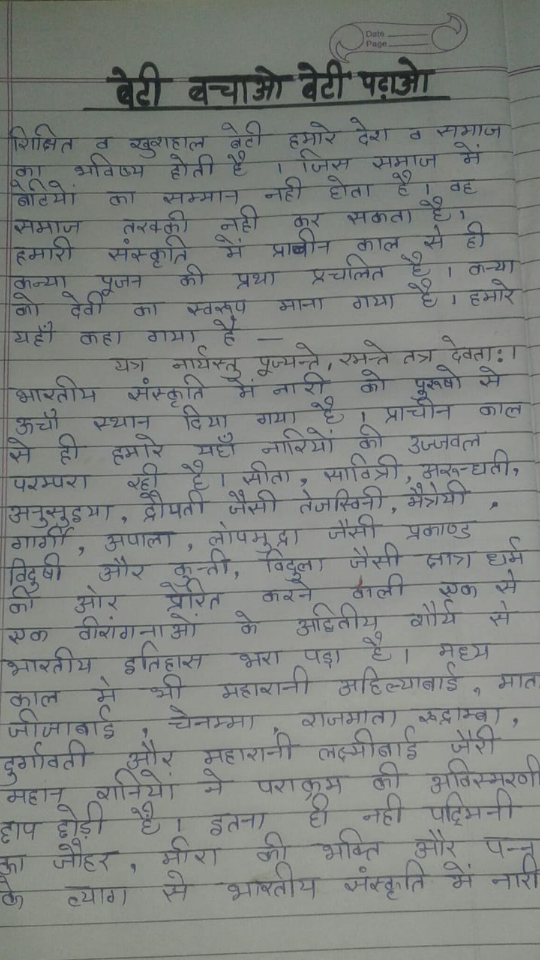 Date
Page
बेटी बचाओ बेटी पढ़ाओ
शिक्षित व खुशहाल बेटी हमारे देश व समाज
का भविष्य होती है । जिस समाज में
बेटियों का सम्मान नही होता है । वह
समाज तरक्की नही कर सकता है ।
हमारी संस्कृति में प्राचीन काल से ही
कन्या पूजन की प्रथा प्रचलित है । कन्या
को देवी का स्वरूप माना गया है । हमारे
यहाँ कहा गया है —
यत्र नार्यस्तु पूज्यन्ते, रमन्ते तत्र देवता: ।
भारतीय संस्कृति में नारी को पुरूषो से
ऊचाँ स्थान दिया गया है । प्राचीन काल
से ही हमारे यहाँ नारियों की उज्जवल
परम्परा रही है । सीता, सावित्री, अरून्धती,
अनुसुइया, द्रौपती जैसी तेजस्विनी, मैत्रैयी,
गार्गी, अपाला, लोपमुद्रा जैसी प्रकाण्ड
विदुषी और कुन्ती, विदुला जैसी क्षात्र धर्म
की ओर प्रेरित करने वाली एक से
एक वीरांगनाओं के अद्वितीय शौर्य से
भारतीय इतिहास भरा पड़ा है । मध्य
काल मे भी महारानी अहिल्याबाई, माता
जीजाबाई, चेनम्मा, राजमाता रूद्राम्बा,
दुर्गावती और महारानी लक्ष्मीबाई जैसी
महान रानियों ने पराक्रम की अविस्मरणी
छाप छोड़ी है । इतना ही नही पद्मिनी
का जौहर, मीरा की भक्ति और पन्न
के त्याग से भारतीय संस्कृति में नारी